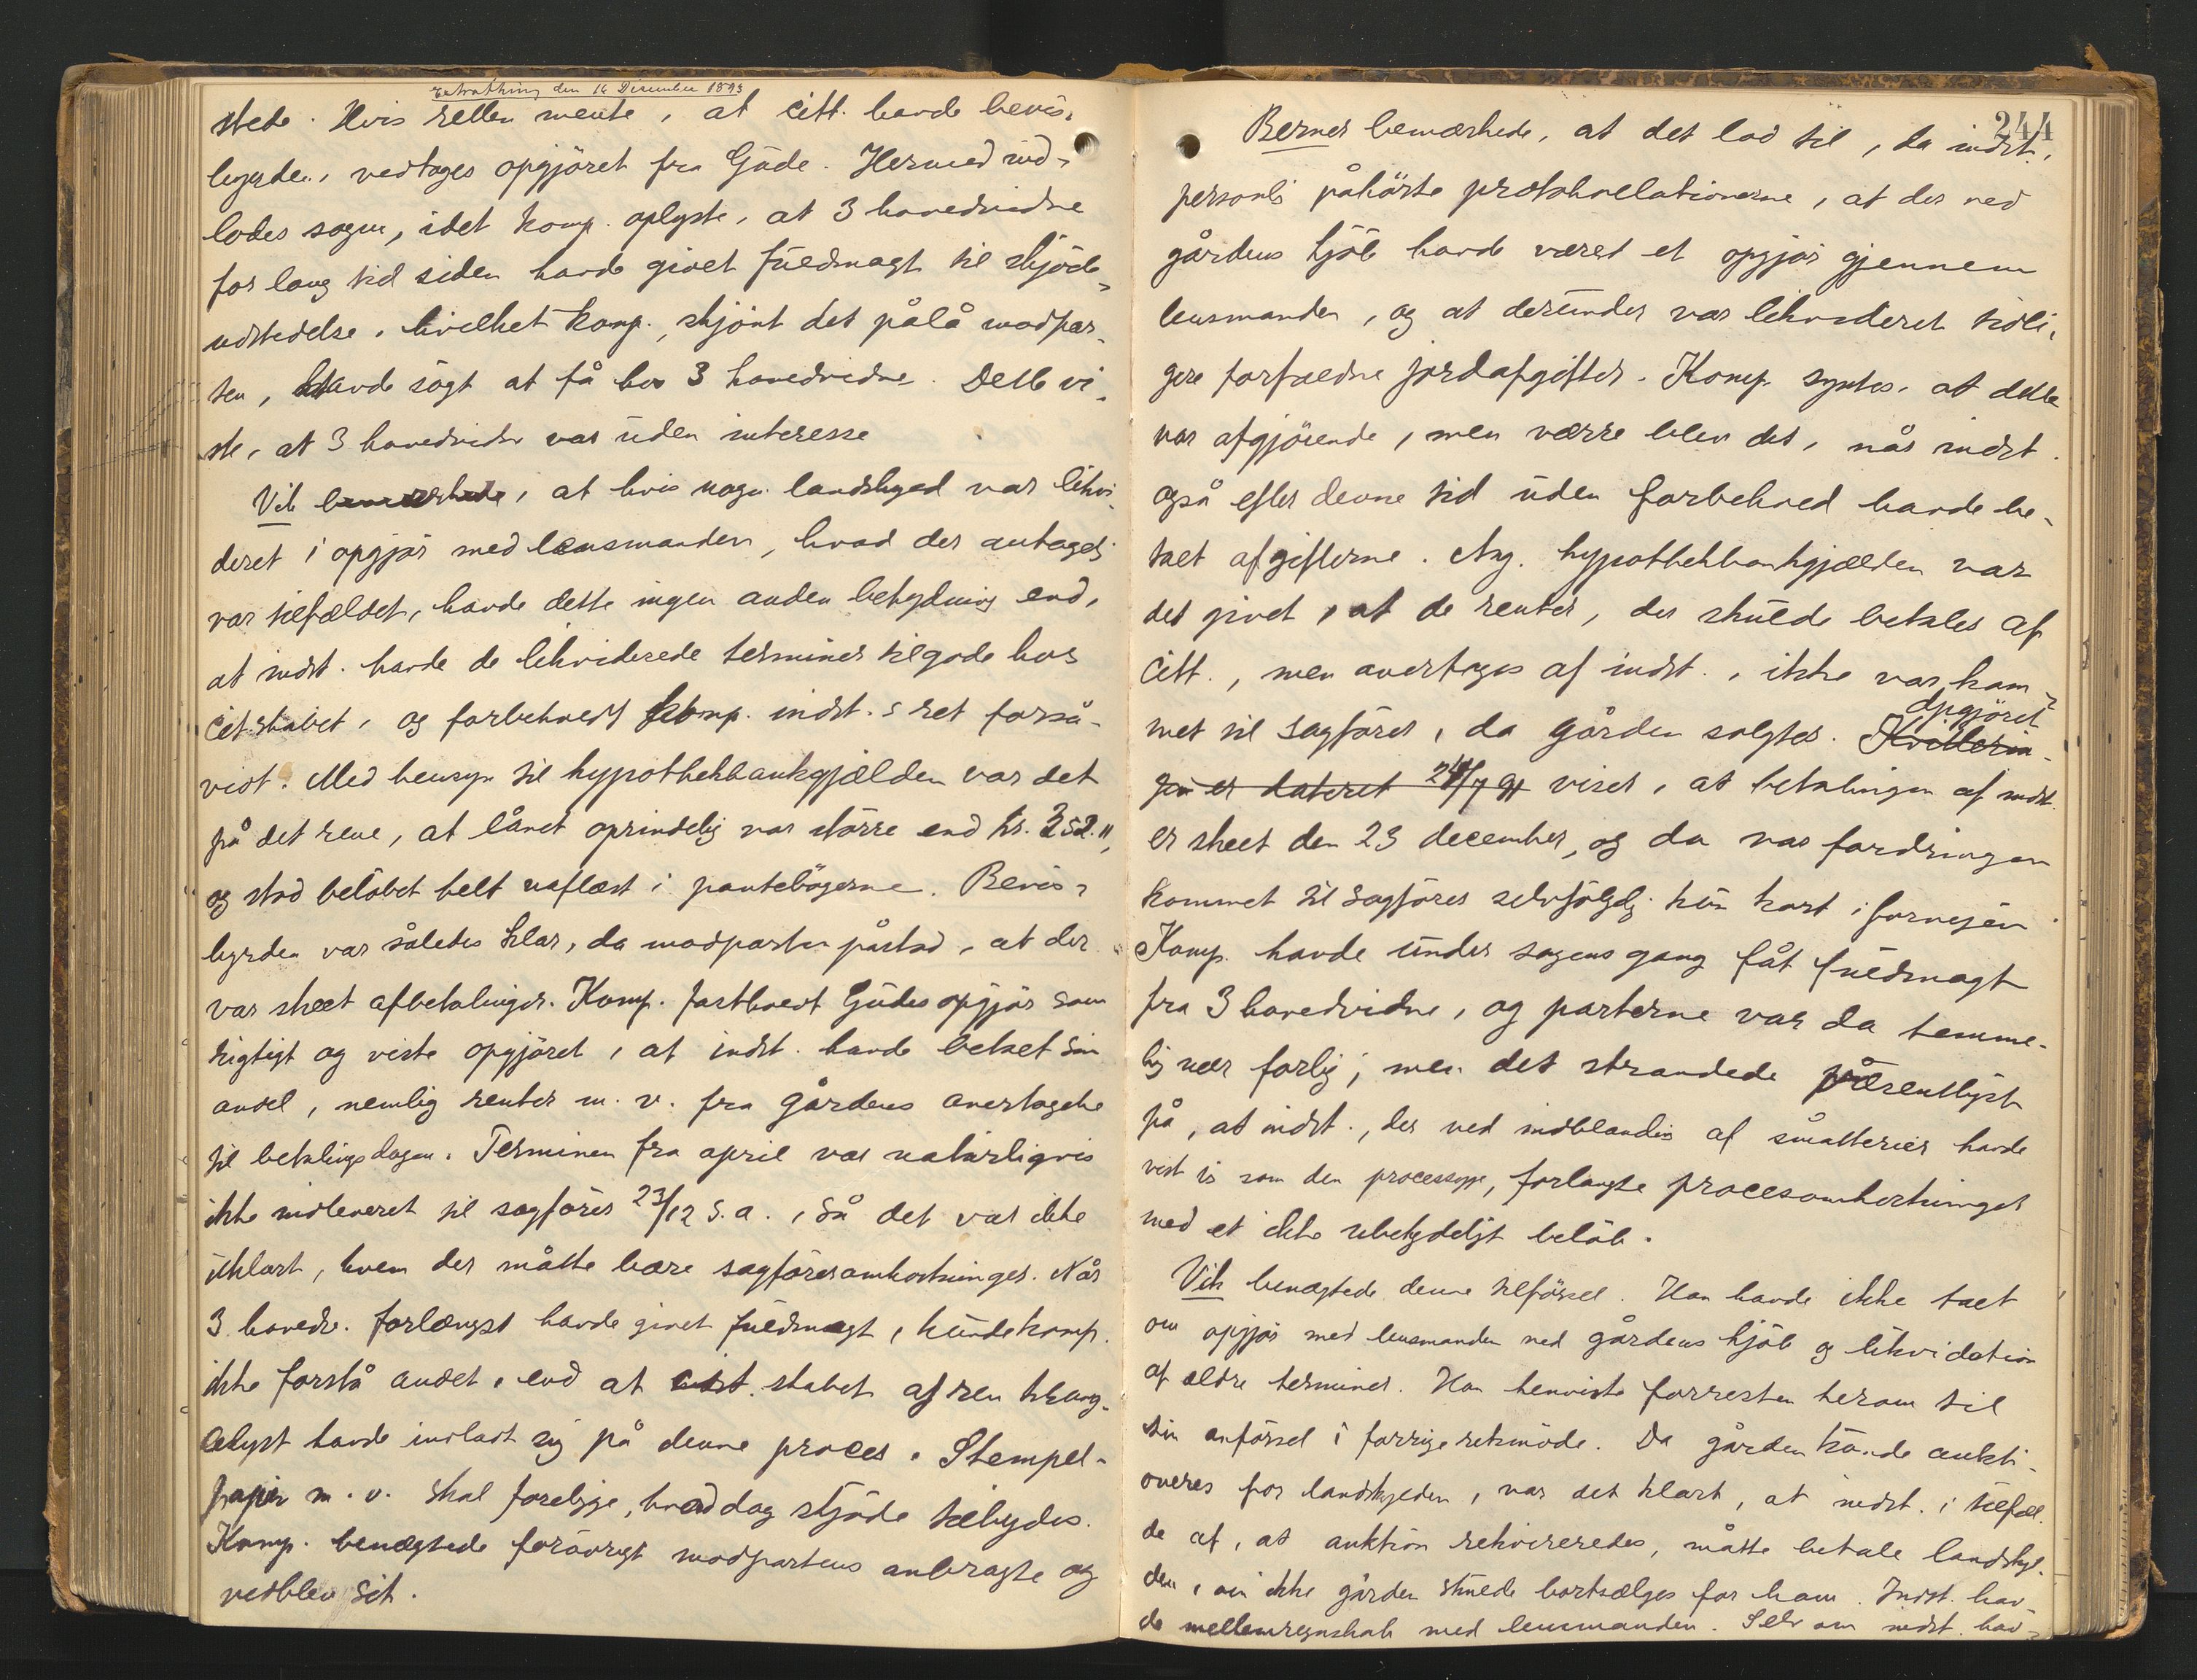 Extrathing den 16 Desember 1893
stede. Hvis retten mente, at citt. havde bevis-
byrden, vedtoges opgjöret fra Gude. Hermed ind-
lodes sagen, idet komp. oplyste, at 3 hovedvidne
for lang tid siden havde givet fuldmagt til skjöde-
udstedelse, hvilket komp., skjönt det pålå modpar-
ten, havde sögt at få hos 3 hovedvidne. Dette vi-
ste, at 3 hovedvidne var uden interesse
Vik bemærkede, at hvis nogen landskyld var likvi-
deret i opgjör med lensmanden, hvad der antages
var tilfældet, havde dette ingen anden betydning end,
at indst. havde de likviderede terminer tilgode hos
citskabet, og forbeholdt komp. indst.s ret forså-
vidt. Med hensyn til hypothekbankgjælden var det
på det rene, at lånet oprindelig var större end kr. 352.",
og stod belöbet helt uaflæst i pantebögerne. Bevis-
byrden var således klar, da modparten påstod, at der
var skeet afbetalinger. Komp. fastholdt Gudes opgjör som
rigtigt og viste opgjöret, at indst. havde betalt sin
andel, nemlig renter m. v. fra gårdens overtagelse
til betalingsdagen. Terminen fra april var naturligvis
ikke indleveret til sagförer 23/12 s. a., så det var ikke
uklart, hvem der måtte bære sagföreromkostninger. Når
3 hovedv. forlængst havde givet fuldmagt, kunde komp.
ikke forstå andet, end at citskabet af ren trang-
elyst havde indladt sig på denne proces. Stempel-
papir m. v. skal foreligge, hvad dag skjöde tilbydes.
Komp. benægtede forövrigt modpartens anbragte og
vedblev sit.
244
Berner bemærkede, at det lod til, da indst.
personli påhörte protokollationerne, at der ved
gårdens kjöb havde været et opgjör gjennem
lensmanden, og at derunder var likvideret tidli-
gere forfaldne jordafgifter. Komp. syntes, at dette
var afgjörende, men værre blev det, når indst.
også efter denne tid uden forbehold havde be-
talt afgifterne. Ang. hypothekbankgjælden var
det givet, at de renter, der skulde betales af
citt., men overtages af indst., ikke var kom-
met til sagförer, da gården solgtes. Opgjöret Kvitterin-
gen er dateret 24/7 91 viser, at betalingen af indst.
er skeet den 23 december, og da var fordringen
kommet til sagförer selvfölgelig kun kort i forvejen.
Komp. havde under sagens gang fåt fuldmagt
fra 3 hovedvidne, og parterne var da temme-
lig nær forlig; men det strandede væsentligst
på, at indst., der ved indblanding af småtterier havde
vist sig som den processyge, forlangte procesomkostninger
med et ikke ubetydeligt belöb.
Vik benægtede denne tilförsel. Han havde ikke talt
om opgjör med lensmanden ved gårdens kjöb og likvidation
af ældre terminer. Han henviste forresten herom til
sin anförsel i forrige retsmöde. Da gården kunde aukti-
oneres for landskylden, var det klart, at indst. i tilfæl-
de af, at auktion rekvireredes, måtte betale landskyl-
den, om ikke gården skulde bortsælges for ham. Indst. hav-
de mellemregnskab med lensmanden. Selv om indst. hav-